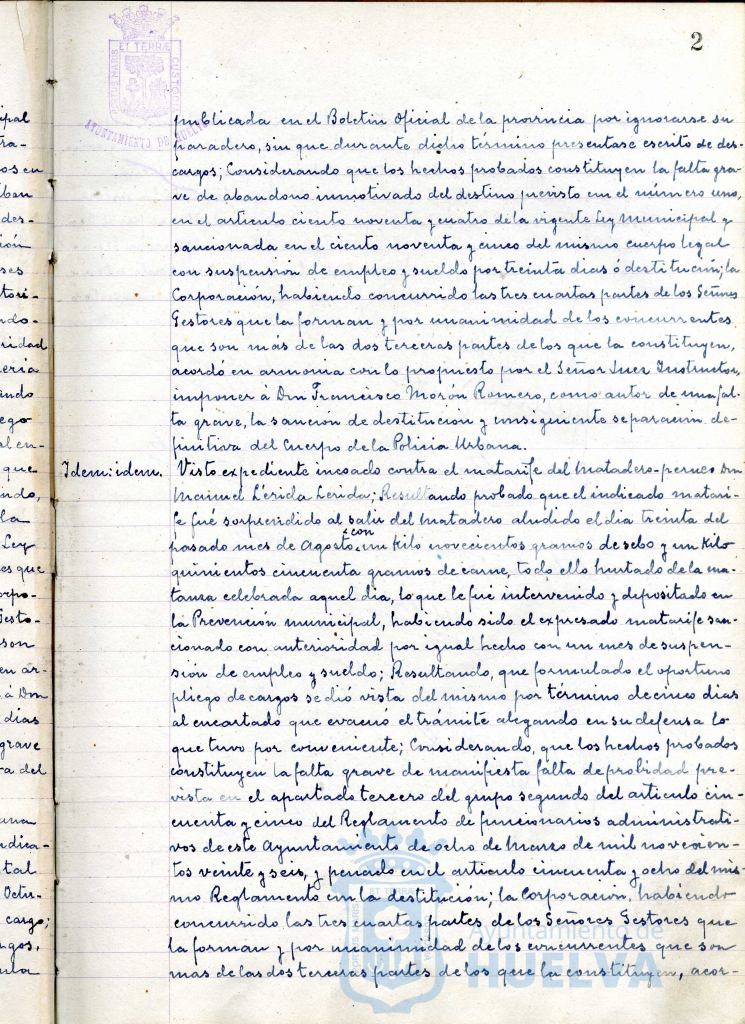 2
PORTUS MARIS ET TERRÆ CUSTODIA
AYUNTAMIENTO DE HUELVA
publicada en el Boletin Oficial de la provincia por ignorarse su
paradero, sin que durante dicho término presentase escrito de des-
cargos; Considerando que los hechos probados constituyen la falta gra-
ve de abandono inmotivado del destino previsto em el número uno,
en el articulo ciento noventa y cuatro de la vigente Ley Municipal y
sancionada en el ciento noventa y cinco del mismo cuerpo legal
con suspensión de empleo y sueldo por treinta dias ó destitución; la
Corporación, habiendo concurrido las tres cuartas partes de los Señores
Gestores que la forman y por unanimidad de los concurrentes
que son más de las dos terceras partes de los que la constituyen,
acordó en armonia con lo propuesto por el Señor Juez Instructor,
imponer á Don Francisco Morón Romero, como autor de una fal-
ta grave, la sanción de destitución y consiguiente separación de-
finitiva del Cuerpo de la Policia Urbana.
Idem: idem. Visto expediente incoado contra el matarife del Matadero-perneo Don
Manuel Lérida Lerida; Resultando probado que el indicado matari-
fe fué sorprendido al salir del Matadero aludido el dia treinta del
pasado mes de Agosto con un kilo novecientos gramos de sebo y un kilo
quinientos cincuenta gramos de carne, todo ello hurtado de la ma-
tanza celebrada aquel dia, lo que le fué intervenido y depositado en
la Prevención municipal, habiendo sido el expresado matarife san-
cionado con anterioridad por igual hecho con un mes de suspen-
sión de empleo y sueldo; Resultando, que formulado el oportuno
pliego de cargos se dió vista del mismo por término de cinco dias
al encartado que evacuó el trámite alegando en su defensa lo
que tuvo por conveniente; Considerando, que los hechos probados
constituyen la falta grave de manifiesta falta de probidad pre-
vista en el apartado tercero del grupo segundo del articulo cin-
cuenta y cinco del Reglamento de funcionarios administrati-
vos de este Ayuntamiento de ocho de Marzo de mil novecien-
tos veinte y seis, y penado en el articulo cincuenta y ocho del mis-
mo Reglamento con la destitución; la Corporación, habiendo
concurrido las tres cuartas partes de los Señores Gestores que
la forman y por unanimidad de los concurrentes que son
mas de las dos terceras partes de los que la constituyen, acor-
Ayuntamiento de
HUELVA